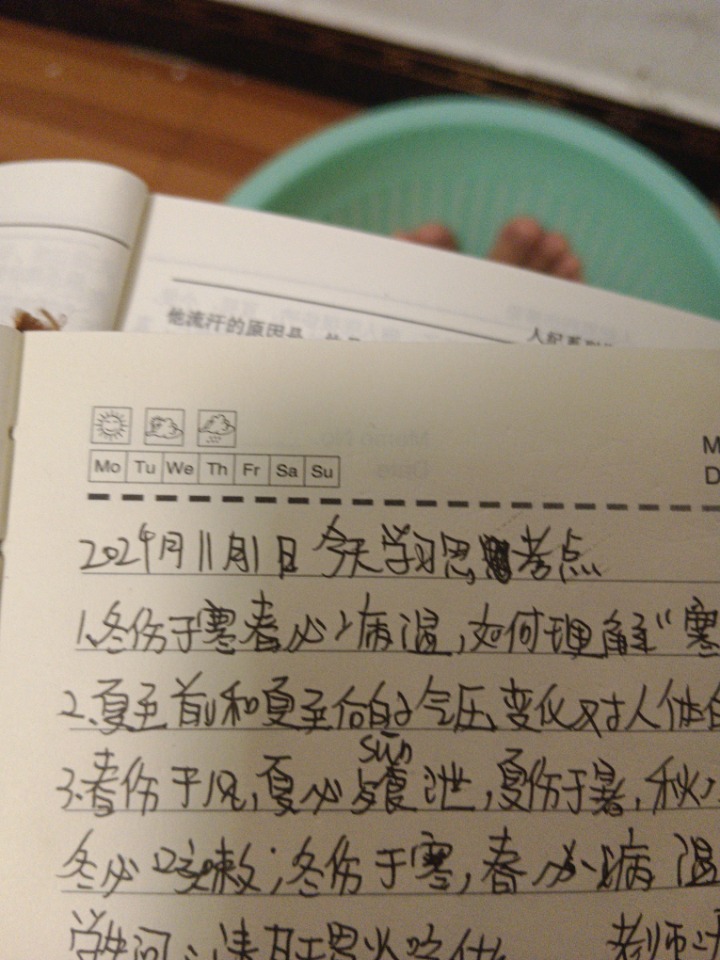 他流汗的原因是
人纪系列
Mo Tu We Th Fr Sa Su
M
D
2024月11月1日 今天学习思考点
1、冬伤于寒春必病温,如何理解“寒
2、夏至前和夏至后的气压变化对人体自
sūn
3、春伤于风,夏必飧泄,夏伤于暑,秋
冬必咳嗽;冬伤于寒,春必病温
学生问:
老师